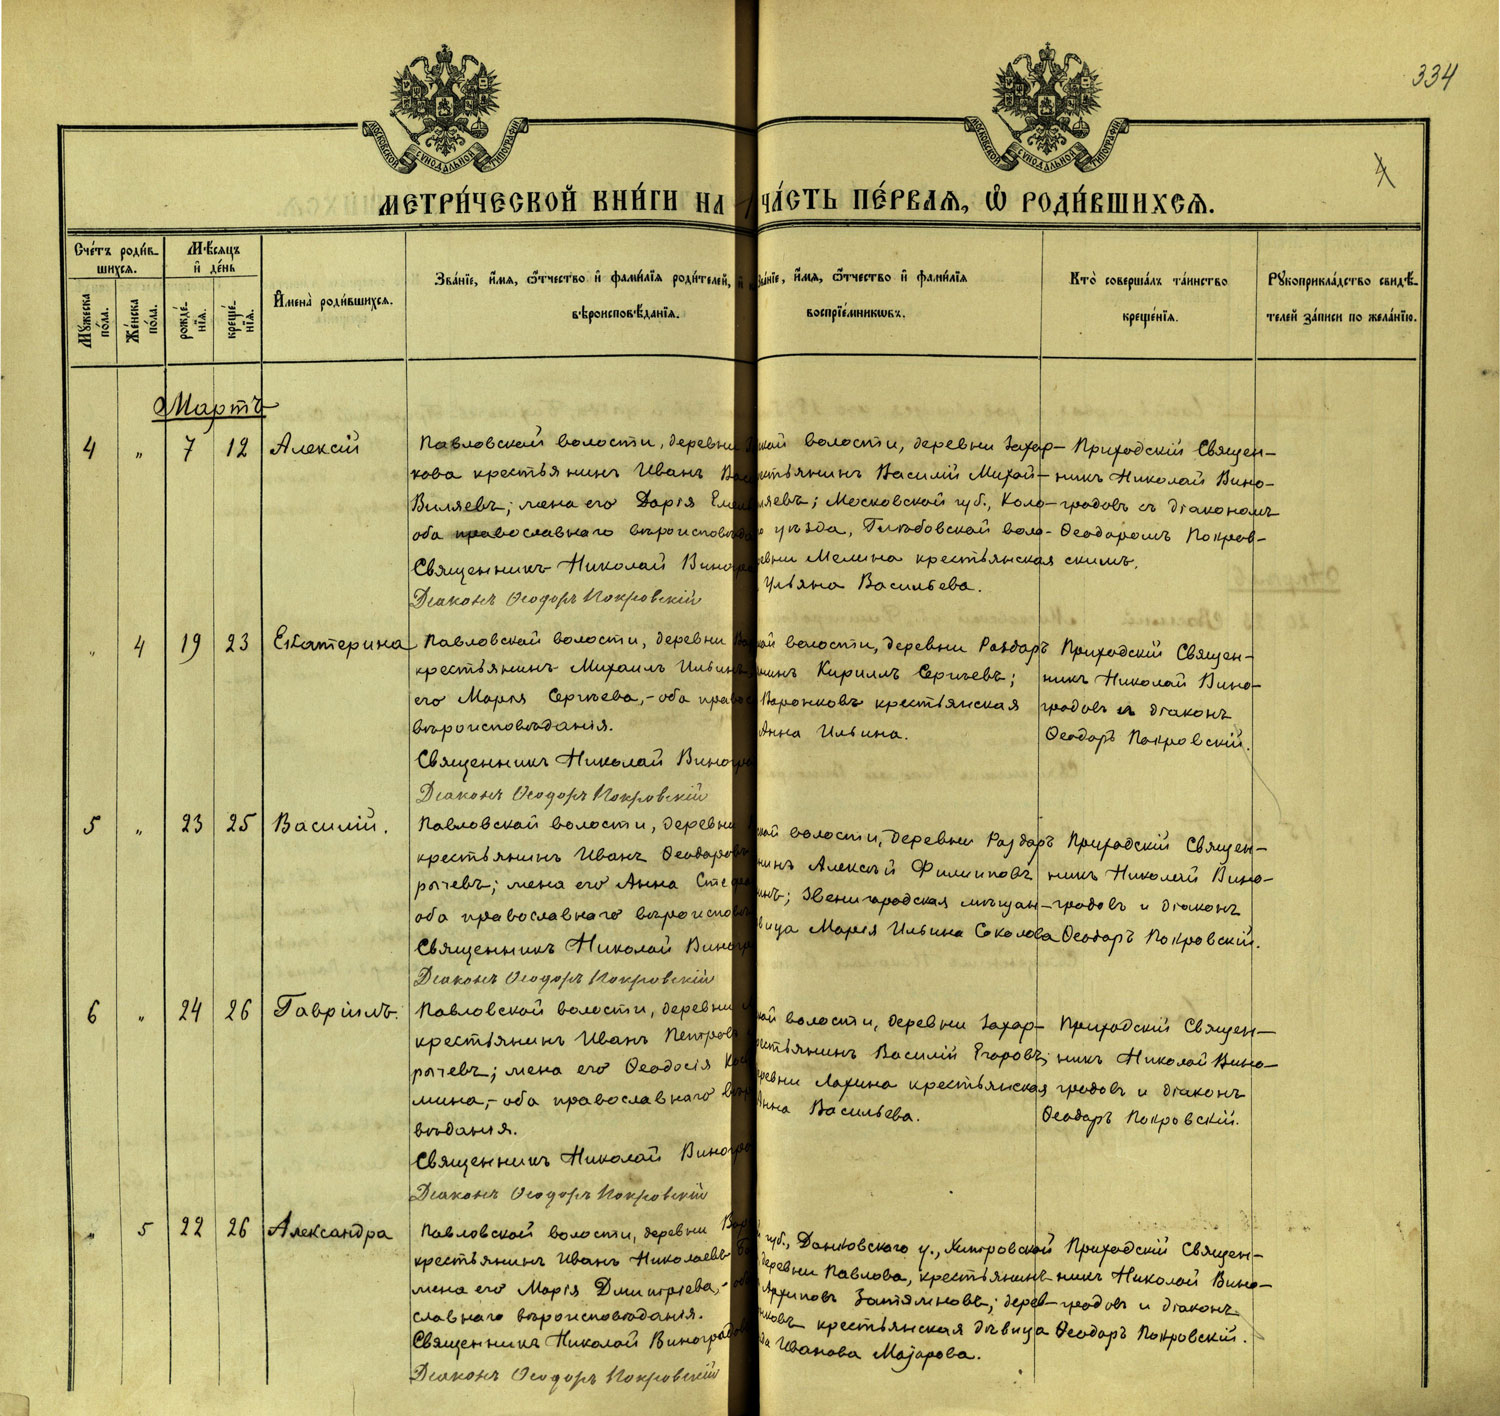 334
МОСКОВСКОЙ СѴНОДАЛЬНОЙ ТИПОГРАФІИ
МОСКОВСКОЙ СѴНОДАЛЬНОЙ ТИПОГРАФІИ
4
МЕТРИ́ЧЕСКОЙ КНИ́ГИ НА
ЧА́СТЬ ПЕ́РВАѦ, Ѽ РОДИ́ВШИХСѦ.
Сче́тъ роди́в-
шихсѧ.
Мꙋжеска по́ла.
Же́нска по́ла.
Мѣ́сѧцъ и҆ де́нь
рожде́нїѧ.
креще́нїѧ.
И҆мена̀ роди́вшихсѧ.
Зва́нїе, и҆́мѧ, ѻ҆́тчество и҆ фами́лїѧ роди́телей, и҆
вѣроисповѣ́данїѧ.
Зва́нїе, и҆́мѧ, ѻ҆́тчество и҆ фами́лїѧ
воспрїе́мникѡвъ.
Кто̀ соверша́лъ та́инство
креще́нїѧ.
Рꙋкоприкла́дство свидѣ́-
телей за́писи по жела́нїю.
Мартъ
4 " 7 12 Алексій
Павловской волости, деревни
кова крестьянинъ Иванъ Вас
Виляевъ; жена его Дарія Емел
оба православнаго вѣроисповѣда
Священникъ Николай Виногр
Діаконъ Ѳеодоръ Покровскій
кой волости, деревни Захар-
стьянинъ Василій Михай-
ляевъ; Московской губ., Коло-
уѣзда, Глѣбовской воло-
евни Мелина крестьянская
Ульяна Васильева.
Приходскій Священ-
никъ Николай Вино-
градовъ съ діакономъ
Ѳеодоромъ Покров-
скимъ.
" 4 19 23 Екатерина
Павловской волости, деревни
крестьянинъ Михаилъ Ильинъ
его Марія Сергѣева,- оба правос
вѣроисповѣданія.
Священникъ Николай Виногра
Діаконъ Ѳеодоръ Покровскій
кой волости, деревни Раздаръ
нинъ Кириллъ Сергѣевъ;
Воронковъ крестьянская
Анна Ильина.
Приходскій Священ-
никъ Николай Вино-
градовъ и діаконъ
Ѳеодоръ Покровскій.
5 " 23 25 Василій.
Павловской волости, деревни
крестьянинъ Иванъ Ѳеодоровъ
рычевъ; жена его Анна Стефа
оба православнаго вѣроисповѣ
Священникъ Николай Виногр
Діаконъ Ѳеодоръ Покровскій
кой волости, деревни Раздаръ
нинъ Алексѣй Филипповъ
инъ; Звенигородская мѣщан-
вица Марія Ильина Соколова
Приходскій Священ-
никъ Николай Вино-
градовъ и діаконъ
Ѳеодоръ Покровскій.
6 " 24 26 Гавріилъ.
Павловской волости, деревни
крестьянинъ Иванъ Петровъ
рычевъ; жена его Ѳеодосія Коз
мина,- оба православнаго вѣро
вѣданія.
Священникъ Николай Виногр
Діаконъ Ѳеодоръ Покровскій
кой волости, деревни Захар-
рестьянинъ Василій Егоровъ;
ревни Ларина крестьянская
Анна Васильева.
Приходскій Священ-
никъ Николай Вино-
градовъ и діаконъ
Ѳеодоръ Покровскій.
" 5 22 26 Александра
Павловской волости, деревни Вор
крестьянинъ Иванъ Николаевъ
жена его Марія Дмитріева,- об
славнаго вѣроисповѣданія.
Священникъ Николай Виноградов
Діаконъ Ѳеодоръ Покровскій
губ., Данковскаго у., Хитровской
деревни Павлова, крестьянинъ
Архиповъ Затямновъ; дерев-
нковъ крестьянская дѣвица
Иванова Мазарова.
Приходскій Священ-
никъ Николай Вино-
градовъ и діаконъ
Ѳеодоръ Покровскій.